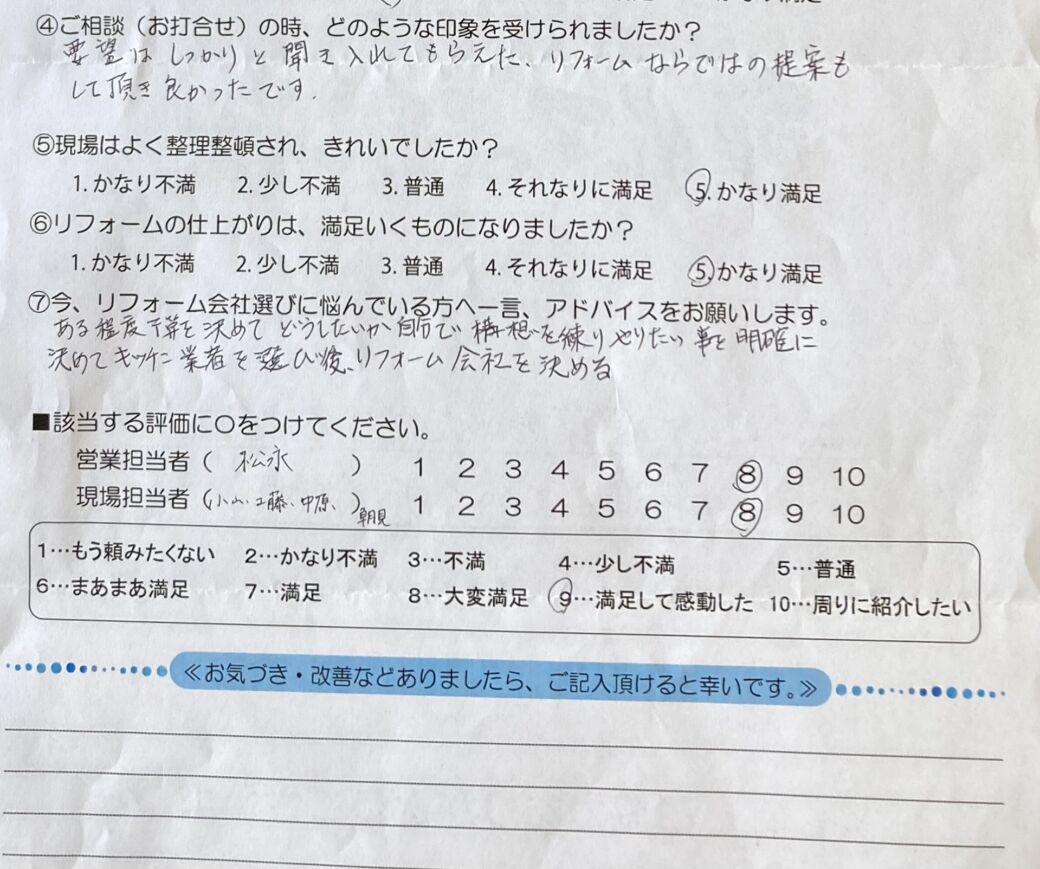 ④ご相談（お打合せ）の時、どのような印象を受けられましたか？
要望はしっかりと聞き入れてもらえた、リフォームならではの提案も
して頂き良かったです.
⑤現場はよく整理整頓され、きれいでしたか？
1. かなり不満 2. 少し不満 3. 普通 4. それなりに満足 5. かなり満足
⑥リフォームの仕上がりは、満足いくものになりましたか？
1. かなり不満 2. 少し不満 3. 普通 4. それなりに満足 5. かなり満足
⑦今、リフォーム会社選びに悩んでいる方へ一言、アドバイスをお願いします。
ある程度予算を決めてどうしたいか自分で構想を練りやりたい事を明確に
決めてキッチン業者を選び後、リフォーム会社を決める
■該当する評価に〇をつけてください。
営業担当者（ 松永 ） 1 2 3 4 5 6 7 8 9 10
現場担当者（小山、工藤、中原、） 1 2 3 4 5 6 7 8 9 10
朝見
1…もう頼みたくない 2…かなり不満 3…不満 4…少し不満 5…普通
6…まあまあ満足 7…満足 8…大変満足 9…満足して感動した 10…周りに紹介したい
≪お気づき・改善などありましたら、ご記入頂けると幸いです。≫